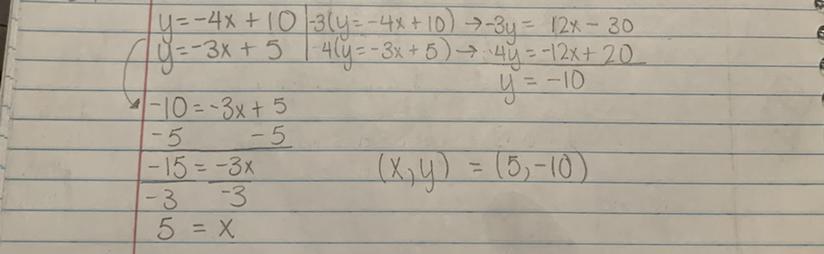 y=-4x+10 | -3(y=-4x+10) → -3y= 12x-30
y=-3x+5 | 4(y=-3x+5) → 4y=-12x+20
y=-10
-10=-3x+5
-5 -5
-15=-3x (x,y) = (5,-10)
-3 -3
5 = x